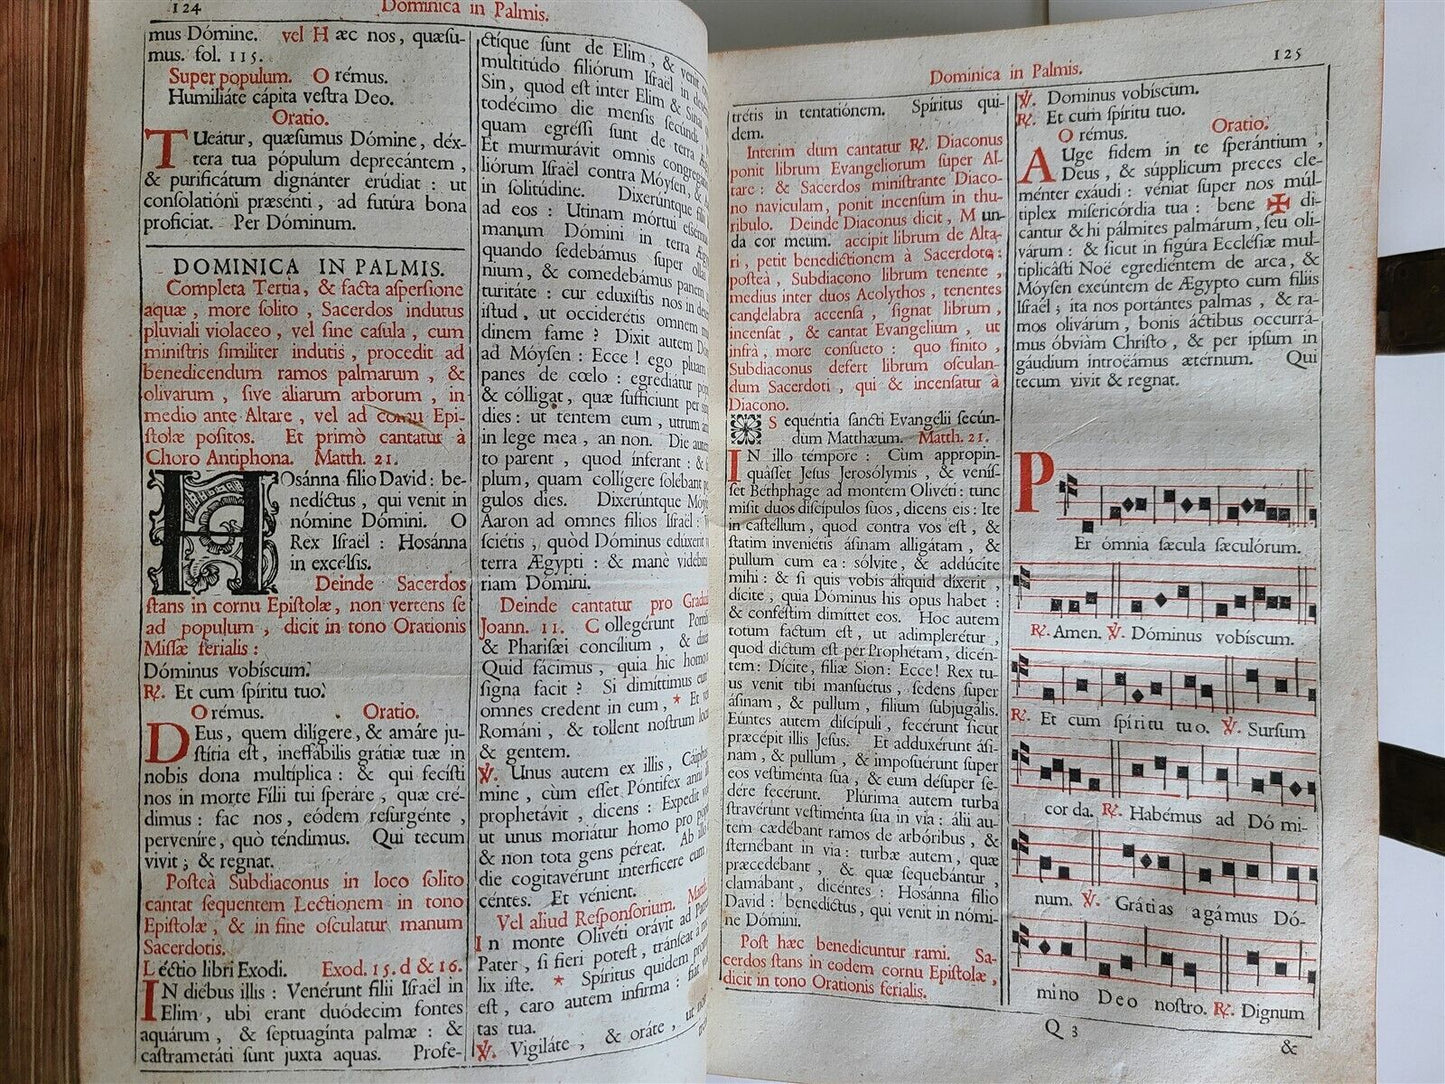 124 Dominica in Palmis.
mus Dómine. vel Hæc nos, quæsu-
mus. fol. 115.
Super populum. Orémus.
Humiliáte cápita vestra Deo.
Oratio.
TUeátur, quæsumus Dómine, déx-
tera tua pópulum deprecántem,
& purificátum dignánter erúdiat : ut
consolatióni præsénti, ad futúra bona
proficiat. Per Dóminum.
DOMINICA IN PALMIS.
Completa Tertia, & facta aspersione
aquæ, more solito, Sacerdos indutus
pluviali violaceo, vel sine casula, cum
ministris similiter indutis, procedit ad
benedicendum ramos palmarum, &
olivarum, sive aliarum arborum, in
medio ante Altare, vel ad cornu Epi-
stolæ positos. Et primò cantatur à
Choro Antiphona. Matth. 21.
HOsánna filio David : be-
nedíctus, qui venit in
nómine Dómini. O
Rex Israël : Hosánna
in excélsis.
Deinde Sacerdos
stans in cornu Epistolæ, non vertens se
ad populum, dicit in tono Orationis
Missæ ferialis :
Dóminus vobíscum.
℟. Et cum spíritu tuo.
Orémus. Oratio.
DEus, quem dilígere, & amáre ju-
stítia est, ineffábilis grátiæ tuæ in
nobis dona multíplica : & qui fecísti
nos in morte Fílii tui speráre, quæ cré-
dimus : fac nos, eódem resurgénte,
perveníre, quò téndimus. Qui tecum
vivit, & regnat.
Posteà Subdiaconus in loco solito
cantat sequentem Lectionem in tono
Epistolæ, & in fine osculatur manum
Sacerdotis.
Léctio libri Exodi. Exod. 15. d & 16.
IN diébus illis : Venérunt filii Israël in
Elim, ubi erant duódecim fontes
aquárum, & septuagínta palmæ : &
castrametáti sunt juxta aquas. Profe-
ctíque sunt de Elim, & venit
multitúdo filiórum Israël in
Sin, quod est inter Elim & Sinai
todécimo die mensis secúndi
quam egréssi sunt de terra
Et murmurávit omnis congregátio
liórum Israël contra Móysen, &
in solitúdine. Dixerúntque filii
ad eos : Utinam mórtui
manum Dómini in terra
quando sedebámus super ollas
nium, & comedebámus panem
turitáte : cur eduxístis nos in
istud, ut occiderétis omnem
dinem fame ? Dixit autem
ad Móysen : Ecce ! ego pluam
panes de cœlo : egrediátur
& cólligat, quæ sufficiunt per
dies : ut tentem eum, utrum
in lege mea, an non. Die
to parent, quod ínferant : &
plum, quam collígere solébant
gulos dies. Dixerúntque
Aaron ad omnes fílios Israël :
sciétis, quòd Dóminus edúxerit
terra Ægypti : & manè
riam Dómini.
Deinde cantatur pro
Joann. 11. Collegérunt
& Pharisǽi concílium, &
Quid fácimus, quia hic
signa facit ? Si dimíttimus
omnes credent in eum, * Et
Románi, & tollent nostrum
& gentem.
℣. Unus autem ex illis,
mine, cùm esset Póntifex
prophetávit, dicens : Expedit
ut unus moriátur homo pro
& non tota gens péreat. Ab
die cogitavérunt interfícere
céntes. Et vénient.
Vel aliud Responsorium.
In monte Olivéti orávit ad
Pater, si fieri potest, tránseat
lix iste. * Spíritus quidem
est, caro autem infírma :
tas tua.
℣. Vigiláte, & oráte,
Dominica in Palmis. 125
trétis in tentatiónem. Spíritus qui-
dem.
Interim dum cantatur ℟. Diaconus
ponit librum Evangeliorum super Al-
tare : & Sacerdos ministrante Diaco-
no naviculam, ponit incensum in thu-
ribulo. Deinde Diaconus dicit, Mun-
da cor meum. accipit librum de Alta-
ri, petit benedictionem à Sacerdote;
posteà, Subdiacono librum tenente,
medius inter duos Acolythos, tenentes
candelabra accensa, signat librum,
incensat, & cantat Evangelium, ut
infrà, more consueto : quo finito,
Subdiaconus defert librum osculan-
dum Sacerdoti, qui & incensatur à
Diacono.
Sequéntia sancti Evangelii secún-
dum Matthæum. Matth. 21.
IN illo témpore : Cùm appropin-
quásset Jesus Jerosólymis, & venís-
set Bethphage ad montem Olivéti : tunc
misit duos discípulos suos, dicens eis : Ite
in castellum, quod contra vos est, &
statim inveniétis ásinam alligátam, &
pullum cum ea : sólvite, & addúcite
mihi : & si quis vobis áliquid díxerit,
dícite, quia Dóminus his opus habet :
& conféstim dimíttet eos. Hoc autem
totum factum est, ut adimplerétur,
quod dictum est per Prophétam, dicén-
tem : Dícite, fíliæ Sion : Ecce! Rex tu-
us venit tibi mansuétus, sedens super
ásinam, & pullum, fílium subjugális.
Eúntes autem discípuli, fecérunt sicut
præcépit illis Jesus. Et adduxérunt ási-
nam, & pullum, & imposuérunt super
eos vestiménta sua, & eum désuper se-
dére fecérunt. Plúrima autem turba
stravérunt vestiménta sua in via : álii au-
tem cædébant ramos de arbóribus, &
sternébant in via : turbæ autem, quæ
præcedébant, & quæ sequebántur,
clamábant, dicéntes : Hosánna fílio
David : benedíctus, qui venit in nómi-
ne Dómini.
Post hæc benedicuntur rami. Sa-
cerdos stans in eodem cornu Epistolæ,
dicit in tono Orationis ferialis.
℣. Dominus vobíscum.
℟. Et cum spíritu tuo.
Orémus. Oratio.
AUge fidem in te sperántium,
Deus, & súpplicum preces cle-
ménter exáudi : véniat super nos múl-
tiplex misericórdia tua : bene ✠ di-
cántur & hi pálmites palmárum, seu oli-
várum : & sicut in figúra Ecclésiæ mul-
tiplicásti Noë egrediéntem de arca, &
Móysen exeúntem de Ægypto cum fíliis
Israël; ita nos portántes palmas, & ra-
mos olivárum, bonis áctibus occurrá-
mus óbviàm Christo, & per ipsum in
gáudium introëámus ætérnum. Qui
tecum vivit & regnat.
PEr ómnia sæcula sæculórum.
℟. Amen. ℣. Dóminus vobíscum.
℟. Et cum spíritu tuo. ℣. Sursum
corda. ℟. Habémus ad Dómi-
num. ℣. Grátias agámus Dó-
mino Deo nostro. ℟. Dignum
Q 3 &